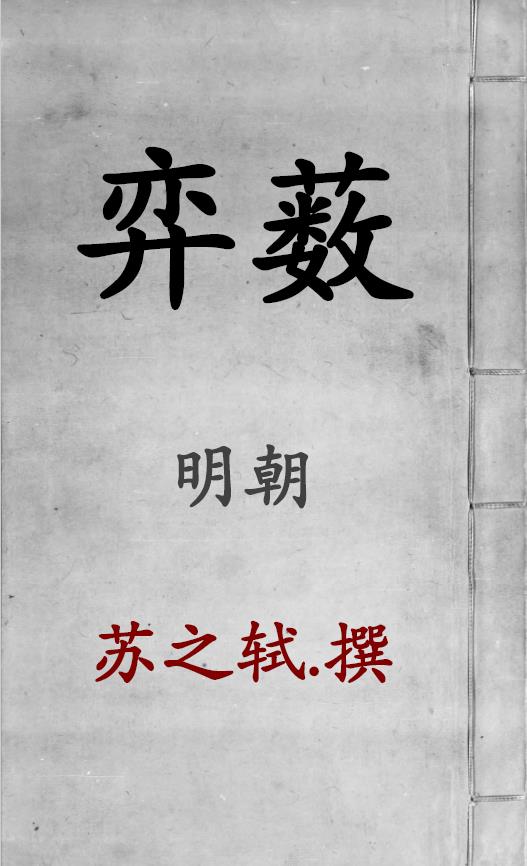 弈薮
明朝
苏之轼.撰